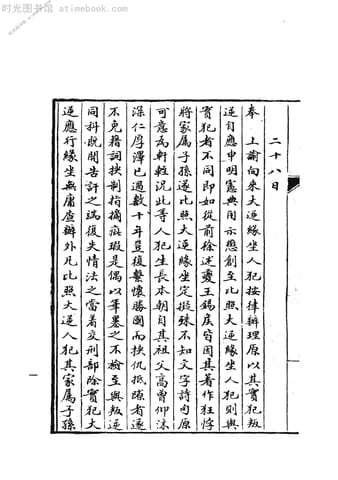 时光图书馆 · atimebook.com
二十八日
奉 上諭向來大逆緣坐人犯按律辦理原以其實犯叛
逆自應申明憲典用示懲創至比照大逆緣坐人犯則與
實犯者不同即如從前徐述夔王錫侯皆因其著作狂悖
將家屬子孫遂比照大逆緣坐定擬殊不知文字詩句原
可意為軒輊況此等人犯生長本朝自其祖父高曾仰沐
深仁厚澤已過數十年豈復繫懷勝國而挾仇抵隙者遂
不免藉詞挾制指摘疵瑕是偶以筆墨之不檢至與叛逆
同科既開告訐之端復失情法之當著交刑部除實犯大
逆應行緣坐無庸查辦外凡比照大逆人犯其家屬子孫